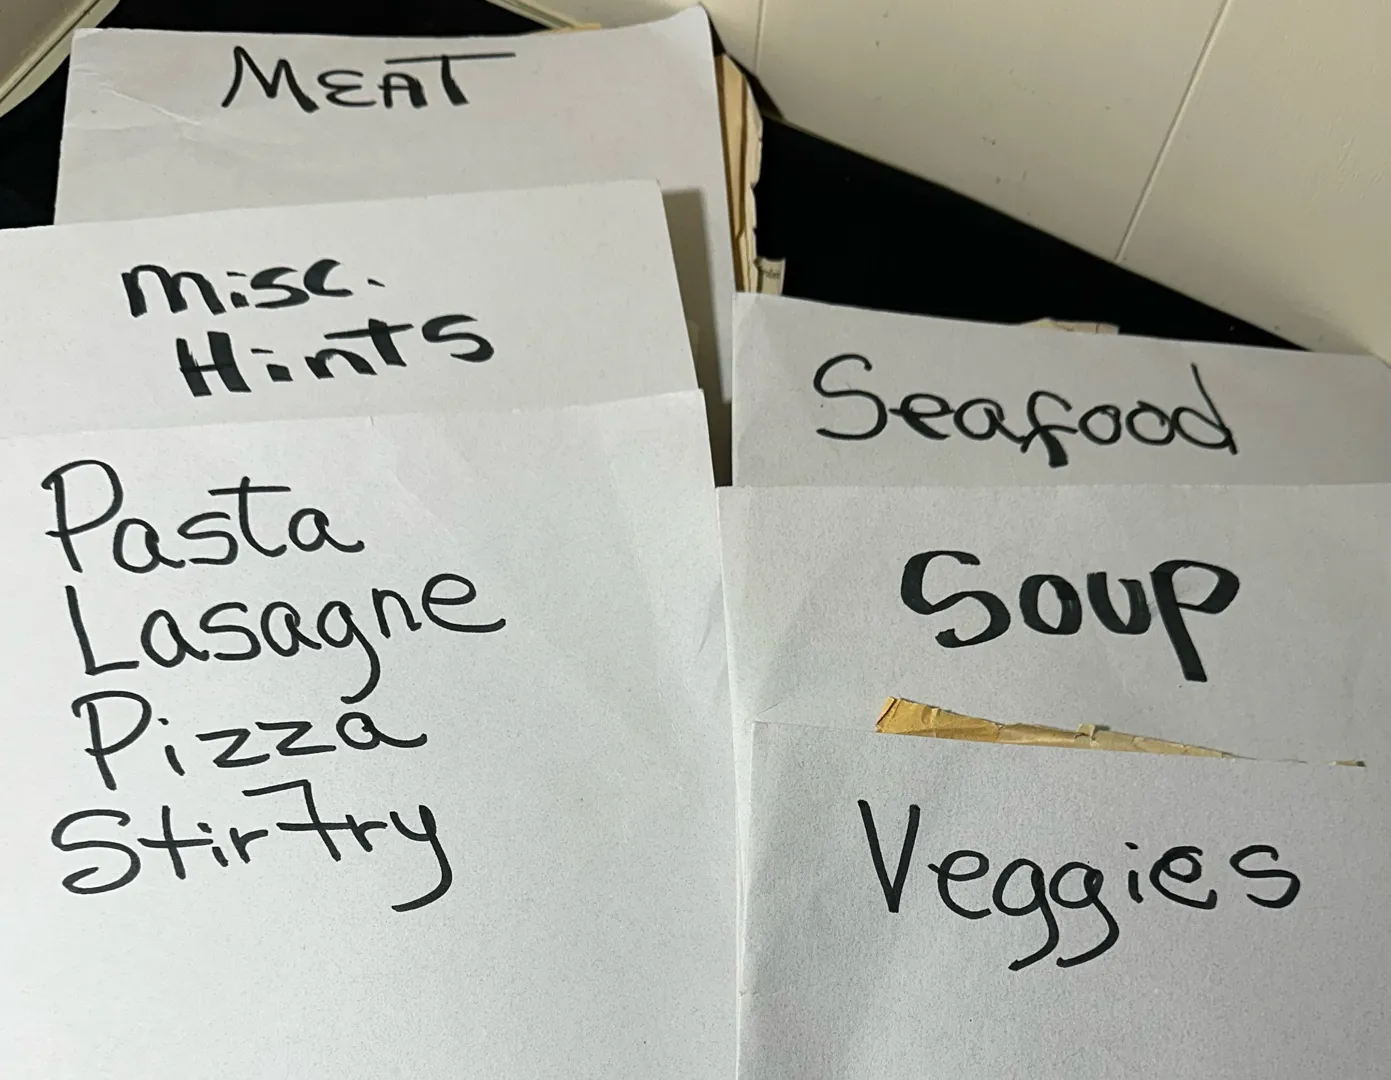 MEAT
misc.
Hints
Pasta
Lasagne
Pizza
Stir Fry
Seafood
Soup
Veggies